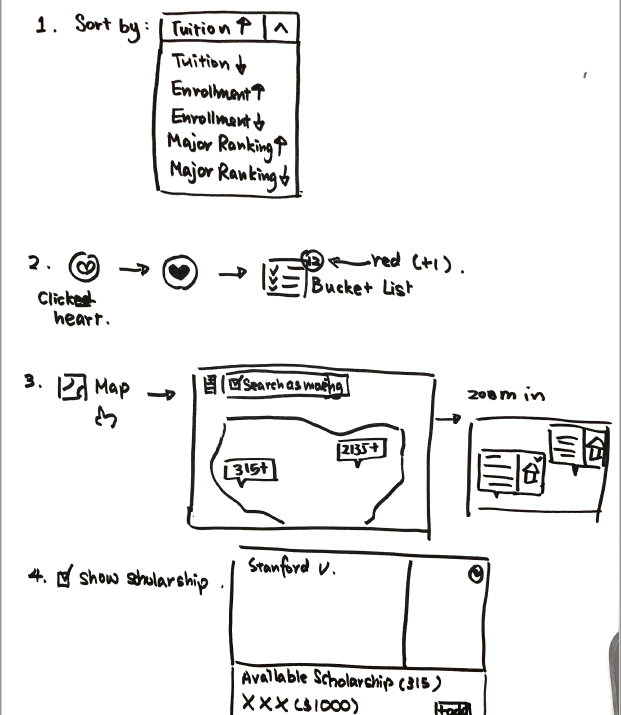 1. Sort by: Tuition ↑ ^
Tuition ↓
Enrollment ↑
Enrollment ↓
Major Ranking ↑
Major Ranking ↓
2. → → red (+1).
Clicked heart.
Bucket List
3. Map → Search as moving → zoom in
315+
2135+
4. Show scholarship.
Stanford U.
Available Scholarship (315)
XXX ($1000)
+add